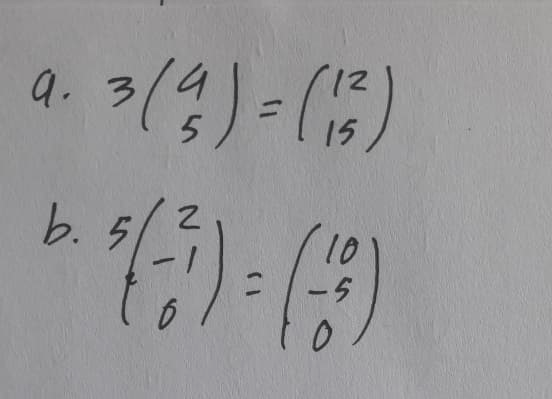 a. 3(4 5) = (12 15)
b. 5(2 -1 0) = (10 -5 0)